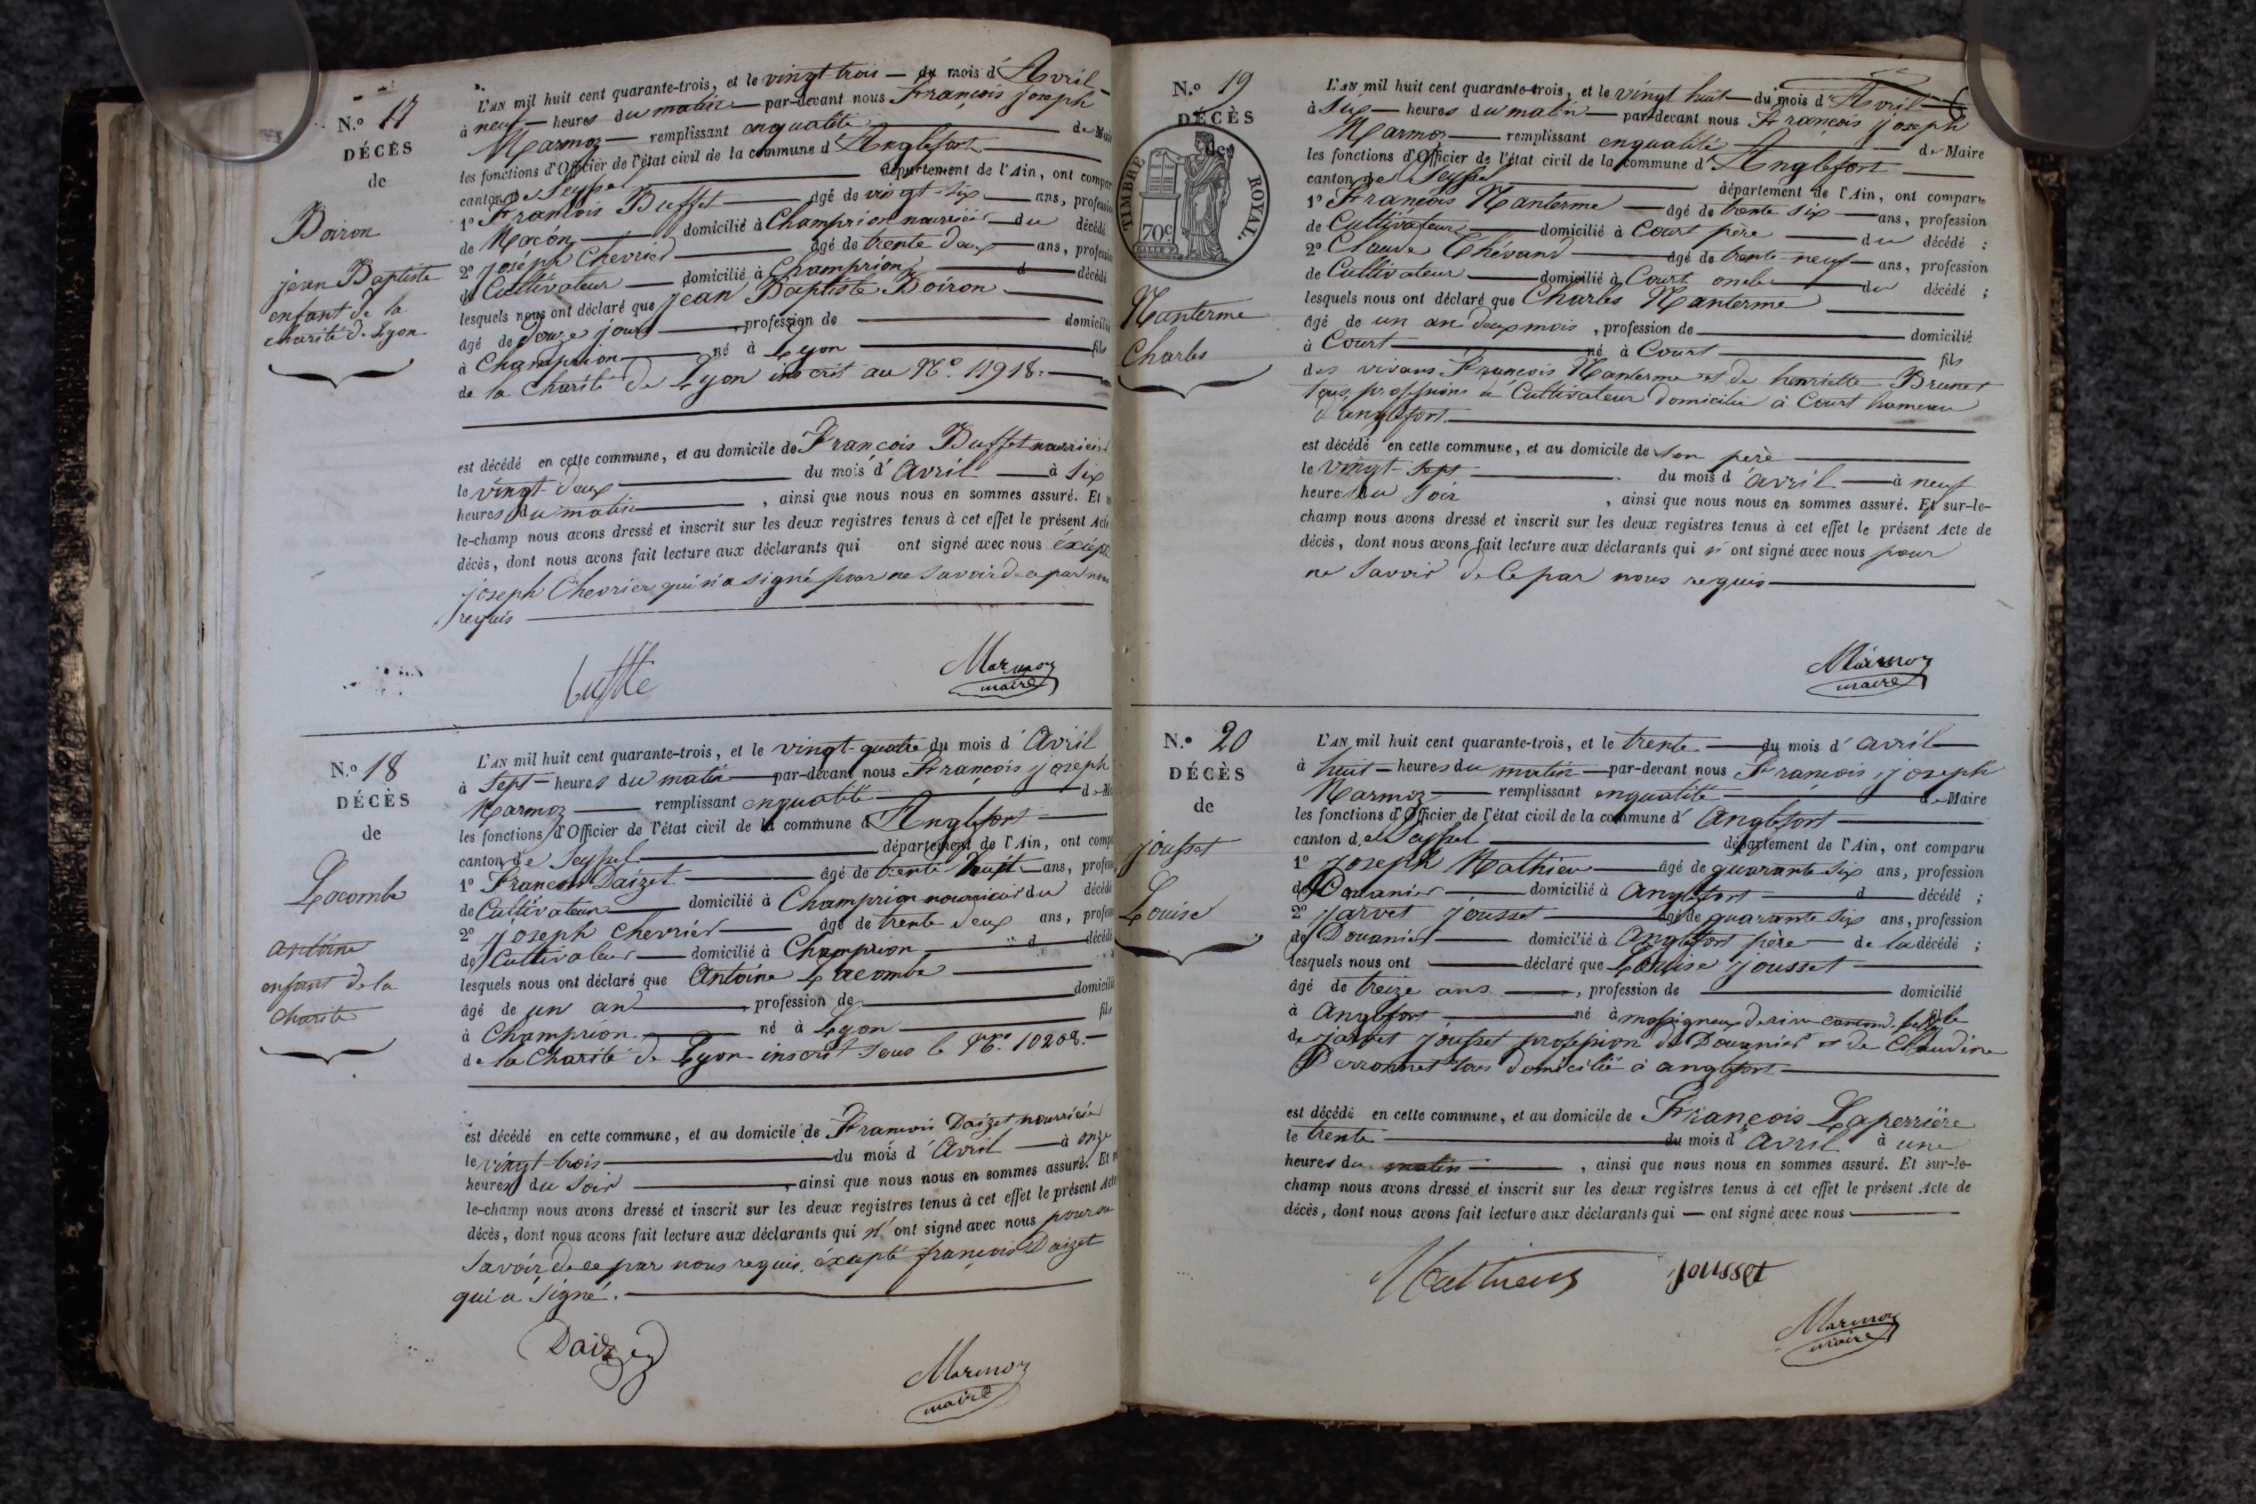 N.o 17
DÉCÈS
de
Boiron
jean Baptiste
enfant de la
charité de Lyon
L'AN mil huit cent quarante-trois, et le vingt trois — du mois d'Avril
à neuf — heures du matin — par-devant nous François joseph
Marmoz — remplissant enqualité — de
les fonctions d'Officier de l'état civil de la commune d'Anglefort
canton de Seyssel — département de l'Ain, ont
1o François Buffet — âgé de vingt-six — ans,
de Maçon — domicilié à Champrion nourricier — du décédé
2o joseph Chevrier — âgé de trente deux — ans,
de Cultivateur — domicilié à Champrion — d — décédé
lesquels nous ont déclaré que jean Baptiste Boiron
âgé de douze jours — , profession de — domicilié
à Champrion — né à Lyon — fils
de la Charité de Lyon inscrit au No. 11918.
est décédé en cette commune, et au domicile de François Buffet nourricier
le vingt-deux — du mois d'avril — à six
heures du matin — , ainsi que nous nous en sommes assuré. Et
le-champ nous avons dressé et inscrit sur les deux registres tenus à cet effet le présent Acte
décès, dont nous avons fait lecture aux déclarants qui ont signé avec nous
joseph Chevrier qui n'a signé pour ne savoir de ce par nous
requis
Marmoz
maire
N.o 18
DÉCÈS
de
Lacombe
antoine
enfant de la
charité
L'AN mil huit cent quarante-trois, et le vingt-quatre du mois d'Avril
à sept — heures du matin — par-devant nous François joseph
Marmoz — remplissant enqualité — de
les fonctions d'Officier de l'état civil de la commune d'Anglefort
canton de Seyssel — département de l'Ain, ont
1o François Daizet — âgé de trente huit — ans,
de Cultivateur — domicilié à Champrion nourricier du décédé
2o joseph Chevrier — âgé de trente deux ans,
de Cultivateur — domicilié à Champrion — d — décédé
lesquels nous ont déclaré que Antoine Lacombe
âgé de un an — , profession de — domicilié
à Champrion — né à Lyon — fils
de la Charité de Lyon inscrit sous le No. 10208.
est décédé en cette commune, et au domicile de François Daizet nourricier
le vingt-trois — du mois d'Avril — à onze
heures du soir — , ainsi que nous nous en sommes assuré. Et
le-champ nous avons dressé et inscrit sur les deux registres tenus à cet effet le présent Acte
décès, dont nous avons fait lecture aux déclarants qui n'ont signé avec nous pour ne
savoir de ce par nous requis, éxcepté françois Daizet
qui a signé.
Daizet
Marmoz
maire
N.o 19
DÉCÈS
de
TIMBRE ROYAL.
70c
Nanterme
Charles
L'AN mil huit cent quarante-trois, et le vingt huit — du mois d'Avril
à six — heures du matin — par-devant nous François joseph
Marmoz — remplissant enqualité — de Maire
les fonctions d'Officier de l'état civil de la commune d'Anglefort
canton de Seyssel — département de l'Ain, ont comparu
1o François Nanterme — âgé de trente six — ans, profession
de Cultivateur — domicilié à Court père — du décédé ;
2o Claude Chévand — âgé de trente-neuf — ans, profession
de Cultivateur — domicilié à Court oncle — du décédé ;
lesquels nous ont déclaré que Charles Nanterme
âgé de un an deux mois , profession de — domicilié
à Court — né à Court — fils
des vivans François Nanterme et de henriette Brunet
tous profession de Cultivateur domicilié à Court hameau
d'anglefort
est décédé en cette commune, et au domicile de son père
le vingt-sept — du mois d'avril — à neuf
heures du soir , ainsi que nous nous en sommes assuré. Et sur-le-
champ nous avons dressé et inscrit sur les deux registres tenus à cet effet le présent Acte de
décès, dont nous avons fait lecture aux déclarants qui n'ont signé avec nous pour
ne savoir de ce par nous requis
Marmoz
maire
N.o 20
DÉCÈS
de
jousset
Louise
L'AN mil huit cent quarante-trois, et le trente — du mois d'avril
à huit — heures du matin — par-devant nous François joseph
Marmoz — remplissant enqualité — de Maire
les fonctions d'Officier de l'état civil de la commune d'Anglefort
canton de Seyssel — département de l'Ain, ont comparu
1o joseph Mathieu — âgé de quarante six ans, profession
de Douanier — domicilié à Anglefort — d — décédé ;
2o jarvet jousset — âgé de quarante six ans, profession
de Douanier — domicilié à Anglefort père — de la décédé ;
lesquels nous ont — déclaré que Louise jousset
âgé de treize ans — , profession de — domicilié
à Anglefort — né à massigneux de rive
de jarvet jousset profession de Douanier et de Claudine
Perronnet tous domicilié à anglefort
est décédé en cette commune, et au domicile de François Laperrière
le trente — du mois d'avril à une
heures du matin — , ainsi que nous nous en sommes assuré. Et sur-le-
champ nous avons dressé et inscrit sur les deux registres tenus à cet effet le présent Acte de
décès, dont nous avons fait lecture aux déclarants qui — ont signé avec nous
Mathieu jousset
Marmoz
maire